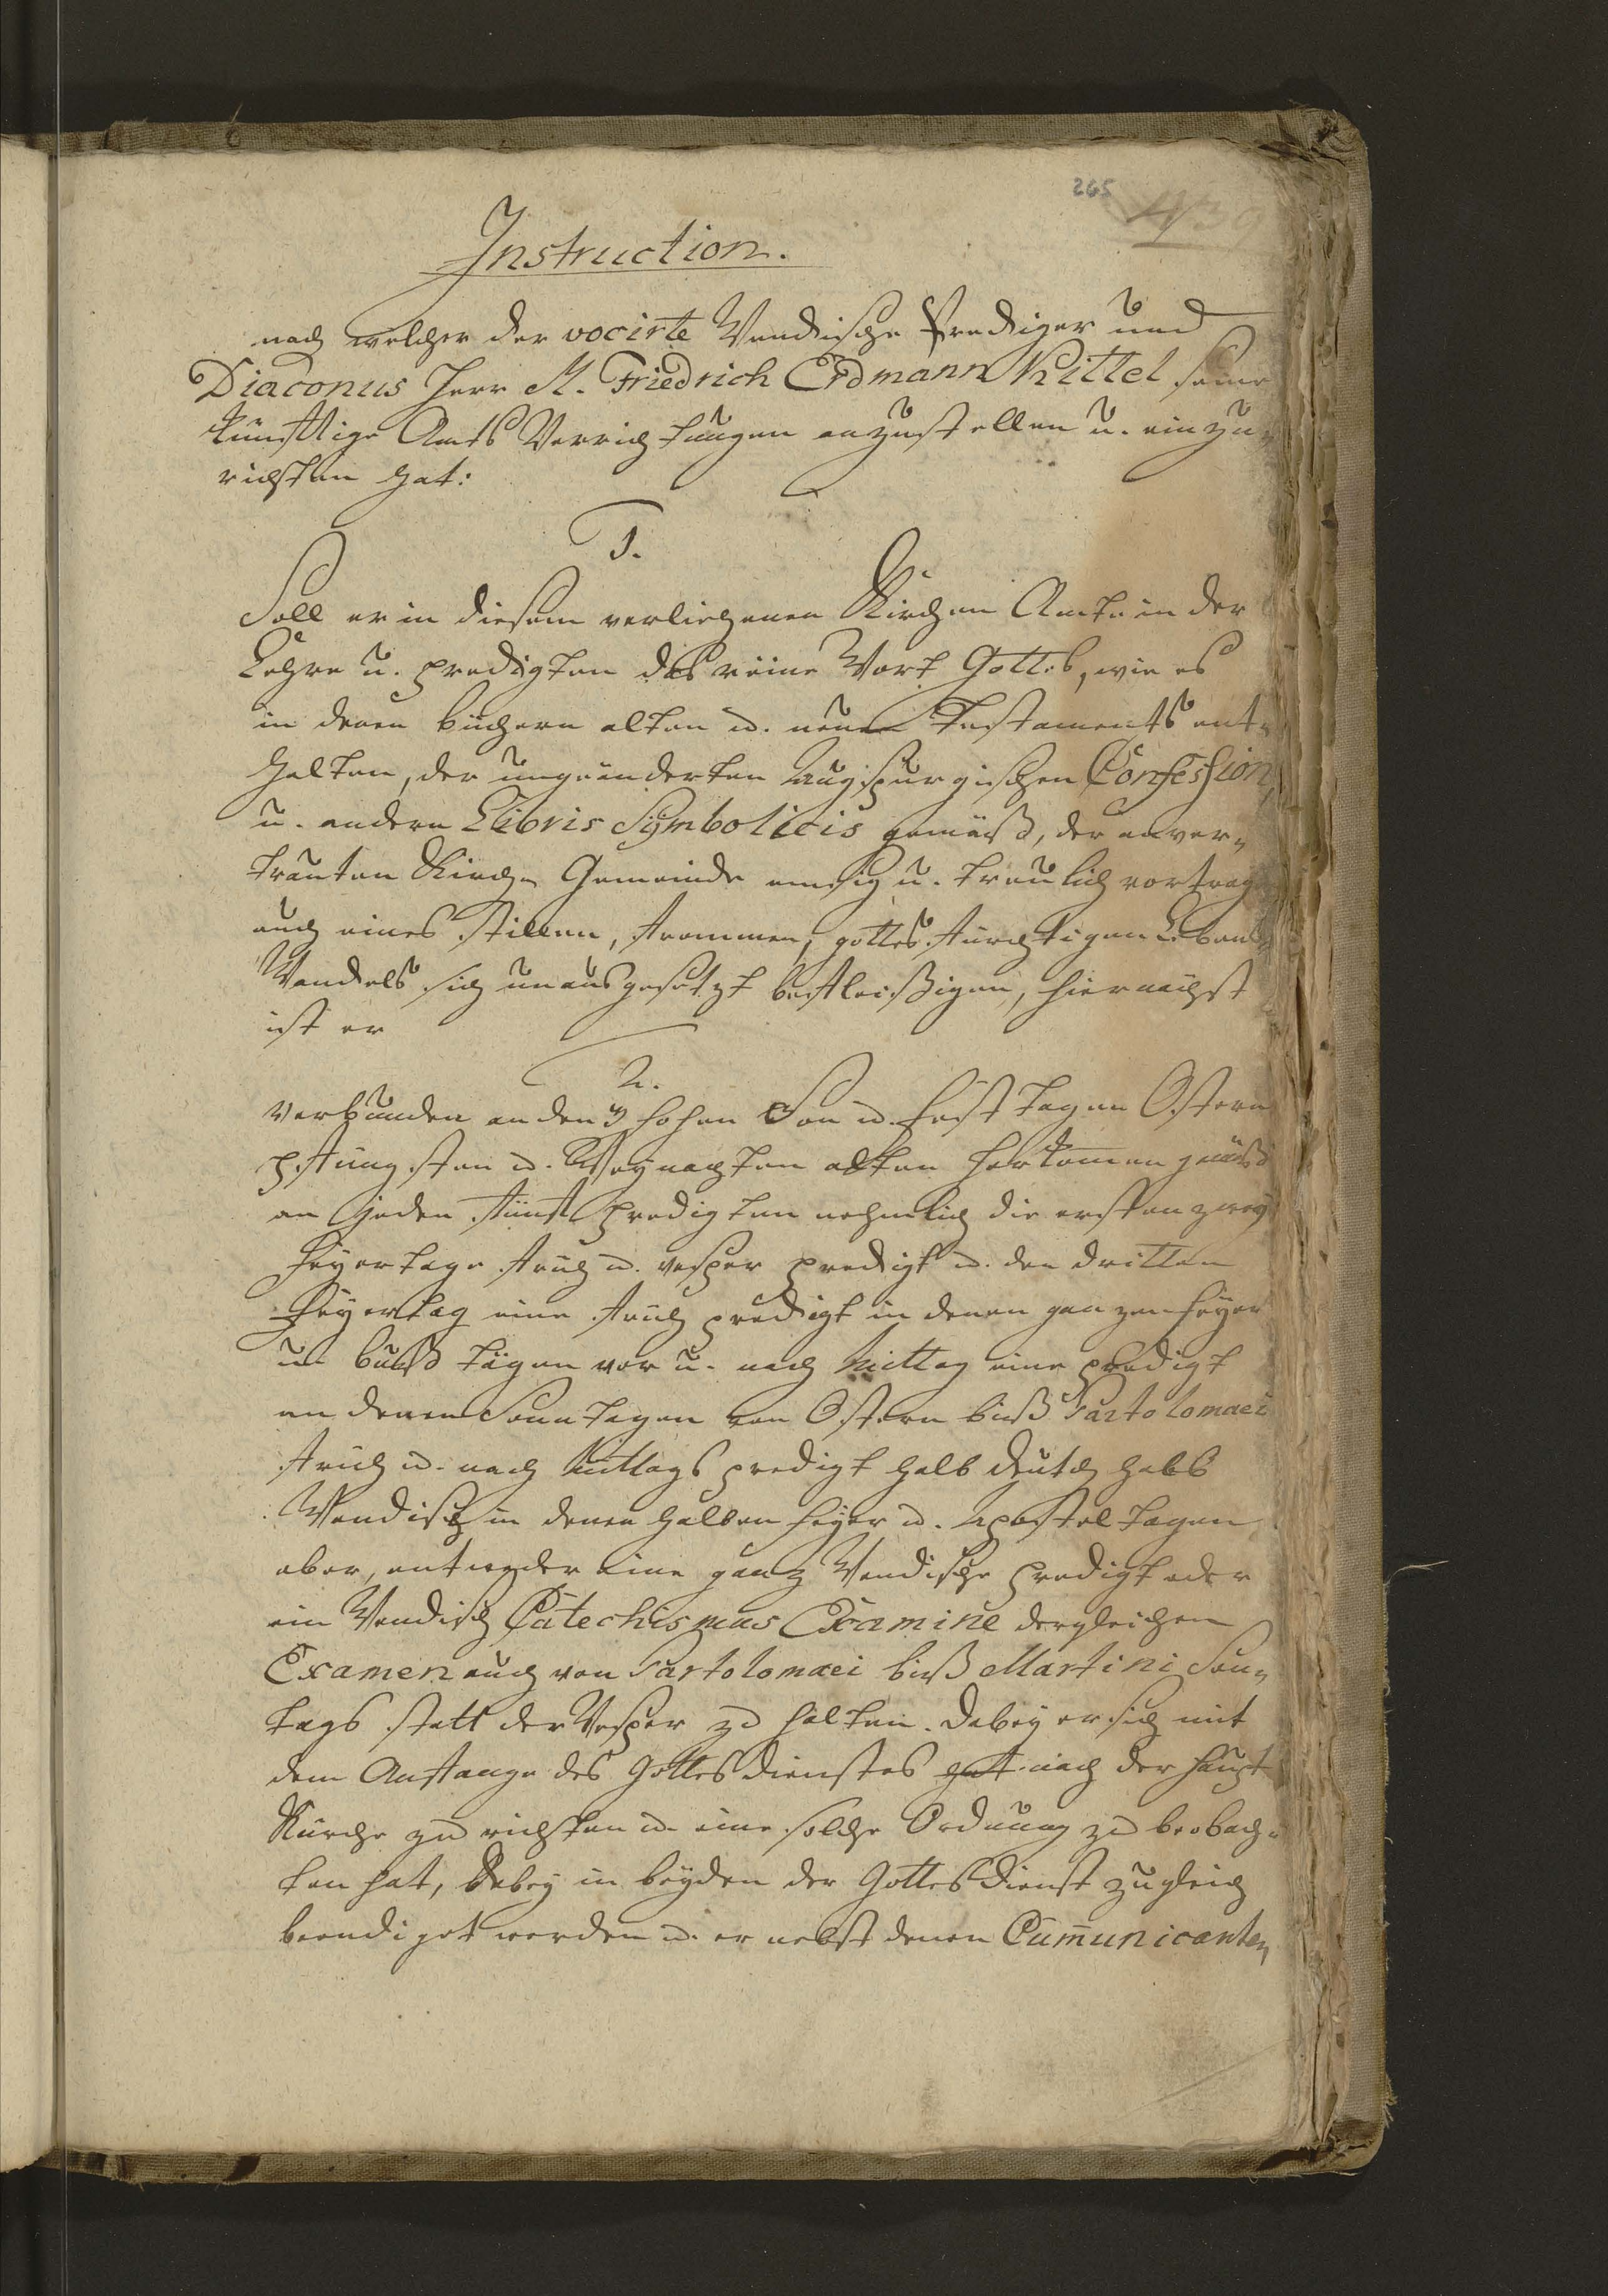 265
Instruction.
nach welcher der vocirte Wendische Prediger und
Diaconus Herr M. Friedrich Erdmann Kittel seine
künfftige Amts Verrichtungen anzustellen u. einzu-
richten hat:
1.
Soll er in diesem verliehenen Kirchen Amte in der
Lehre u. predigten das reine Wort Gottes, wie es
in denen büchern alten u. neuen Testaments ent-
halten, der ungeänderten Augspurgischen Confession
u. andern Libris Symbolicis gemäß, der anver-
trauten Kirch- Gemeinde emsig u. treulich vortrag
auch eines stillen, frommen, gottesfürchtigen Lebens
Wandels sich unausgesetzt befleißigen, hiernächst
ist er
2.
verbunden an den 3 hohen Son u. Fest tagen Ostern
pfüngsten u. Weynachten alten herkommen gemäß
an jeden fünff predigten nehmlich die ersten zwey
Feyertage früh u. vesper predigt u. den dritten
Feyertag eine früh predigt in denen ganzen Feyer
u. buß tägen vor u. nach Mittag eine predigt
an denen Sonntagen von Ostern biß Bartolomaei
früh u. nach Mittags predigt halb deutsch halb
Wendisch in denen halben Feyer u. Apostel tagen
aber, entweder eine ganz Wendische predigt oder
ein Wendisch Catechismus Examine dergleichen
Examen auch von Bartolomaei biß Martini Son-
tags statt der Vesper zu halten. Dabey er sich mit
dem Anfange des Gottesdienstes nach der Haupt
Kirche zu richten u. eine solche Ordnung zu beobach-
ten hat, dabey in beyden der Gottesdienst zugleich
beendiget werden u. er nebst denen Cumunicanten